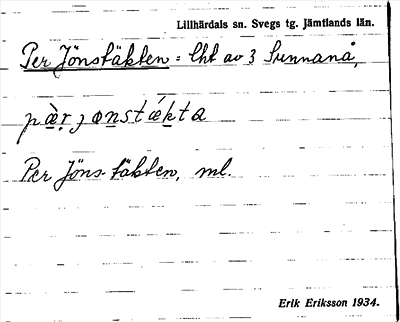 Lillhärdals sn. Svegs tg. Jämtlands län.
Per Jönstäkten = lht av 3 Sunnanå,
Per Jöns-täkten, ml.
Erik Eriksson 1934.